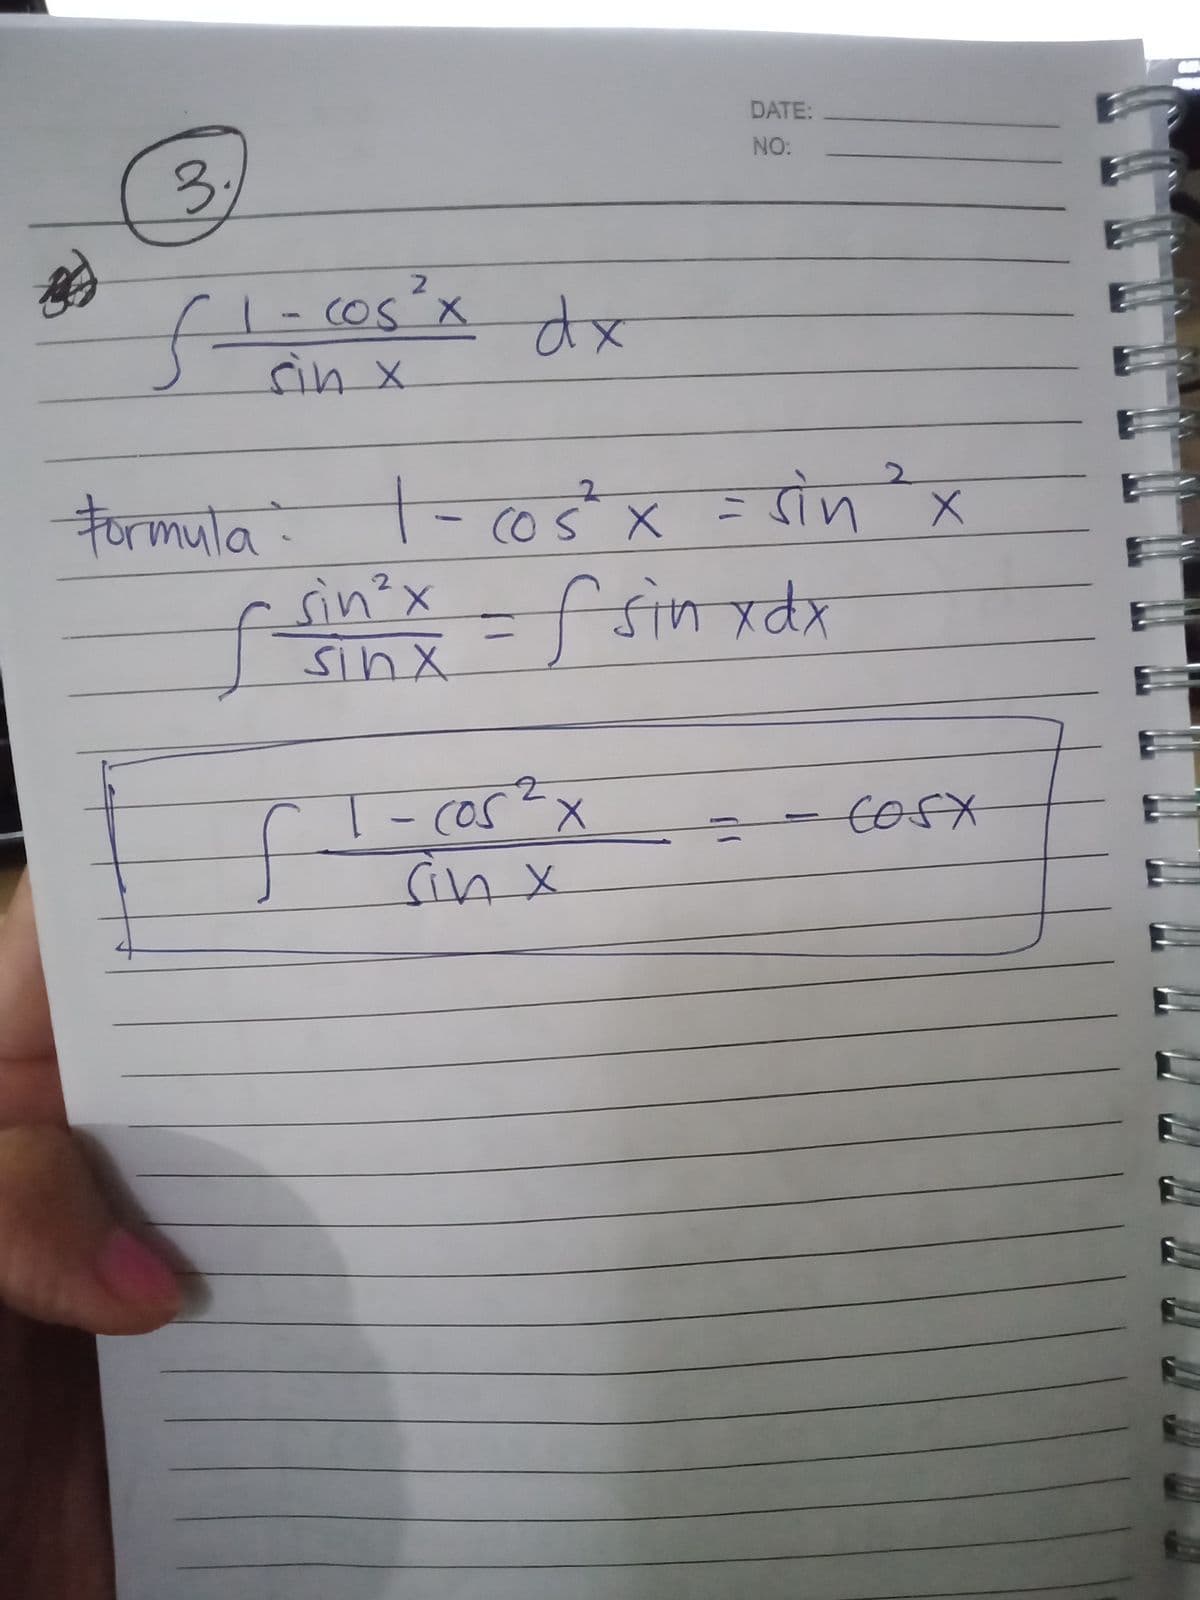 DATE:
NO:
3.
∫ 1 - cos²x / sin x dx
formula: 1 - cos²x = sin²x
∫ sin²x / sin x = ∫ sin x dx
∫ 1 - cos²x / sin x = - cosx